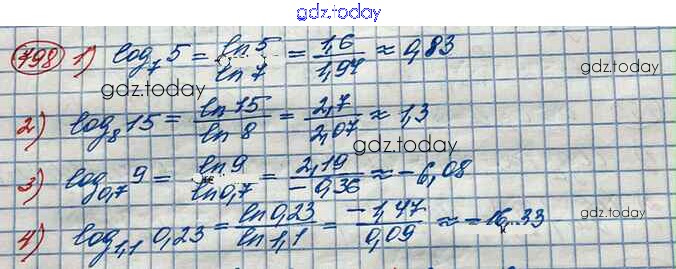 gdz.today
798 1) log₇ 5 = ln 5 / ln 7 = 1,6 / 1,94 ≈ 0,83
gdz.today
gdz.today
2) log₈ 15 = ln 15 / ln 8 = 2,7 / 2,07 ≈ 1,3
gdz.today
3) log₀,₇ 9 = ln 9 / ln 0,7 = 2,19 / -0,36 ≈ -6,08
gdz.today
4) log₁,₁ 0,23 = ln 0,23 / ln 1,1 = -1,47 / 0,09 ≈ -16,33
gdz.today